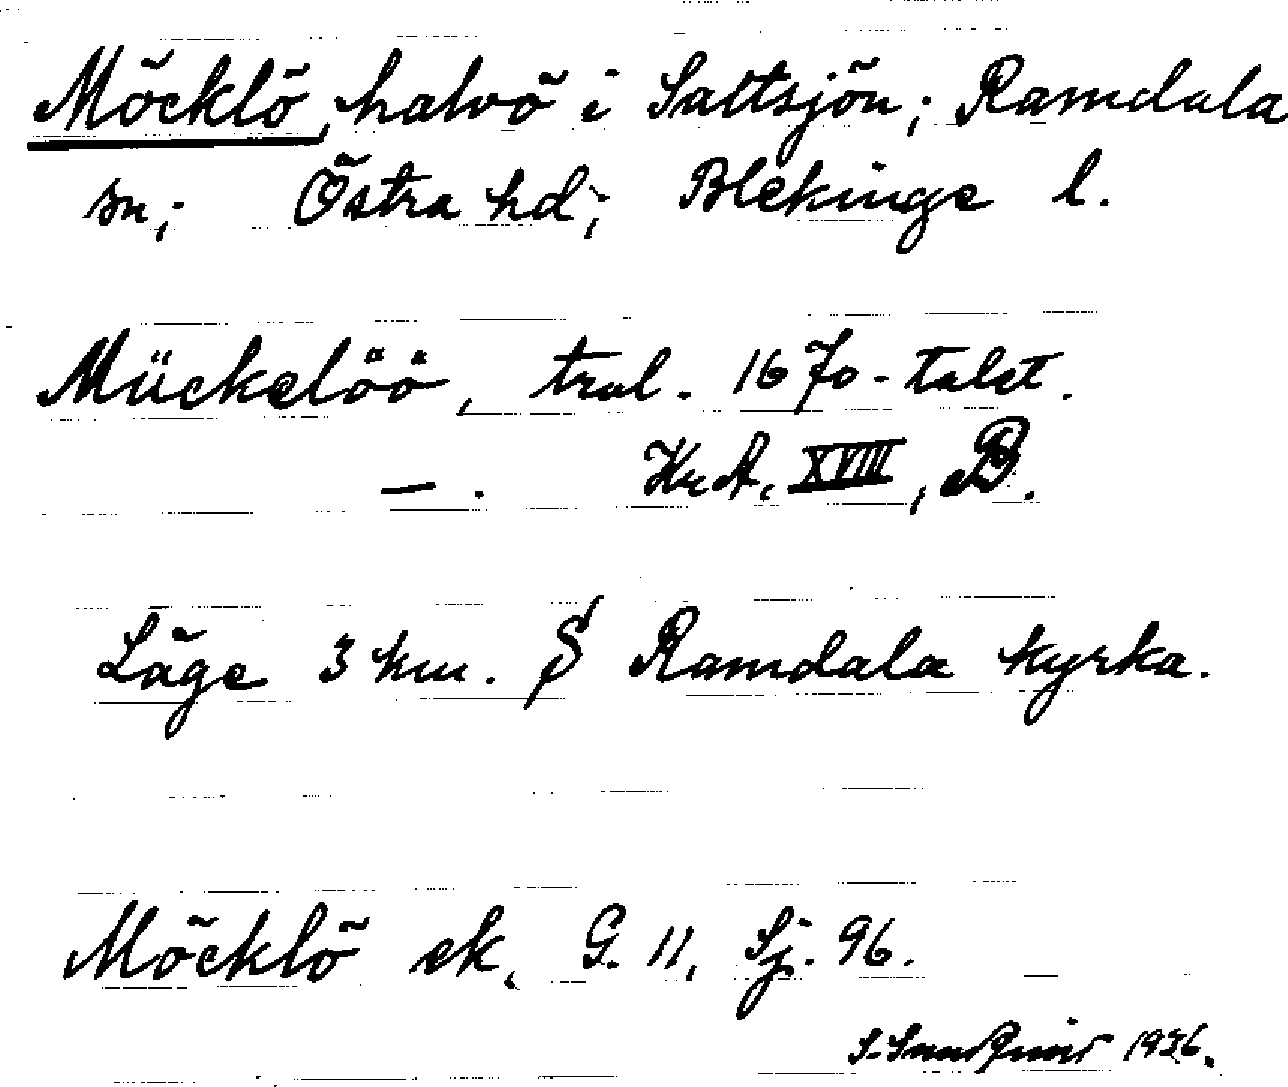 Möcklö, halvö i Saltsjön; Ramdala
sn; Östra hd; Blekinge l.
Mückelöö, trol. 1670-talet.
— . KrA, XVIII, B.
Läge 3 km. S Ramdala kyrka.
Möcklö ek. G. 11, Sj. 96.
S. 1936.